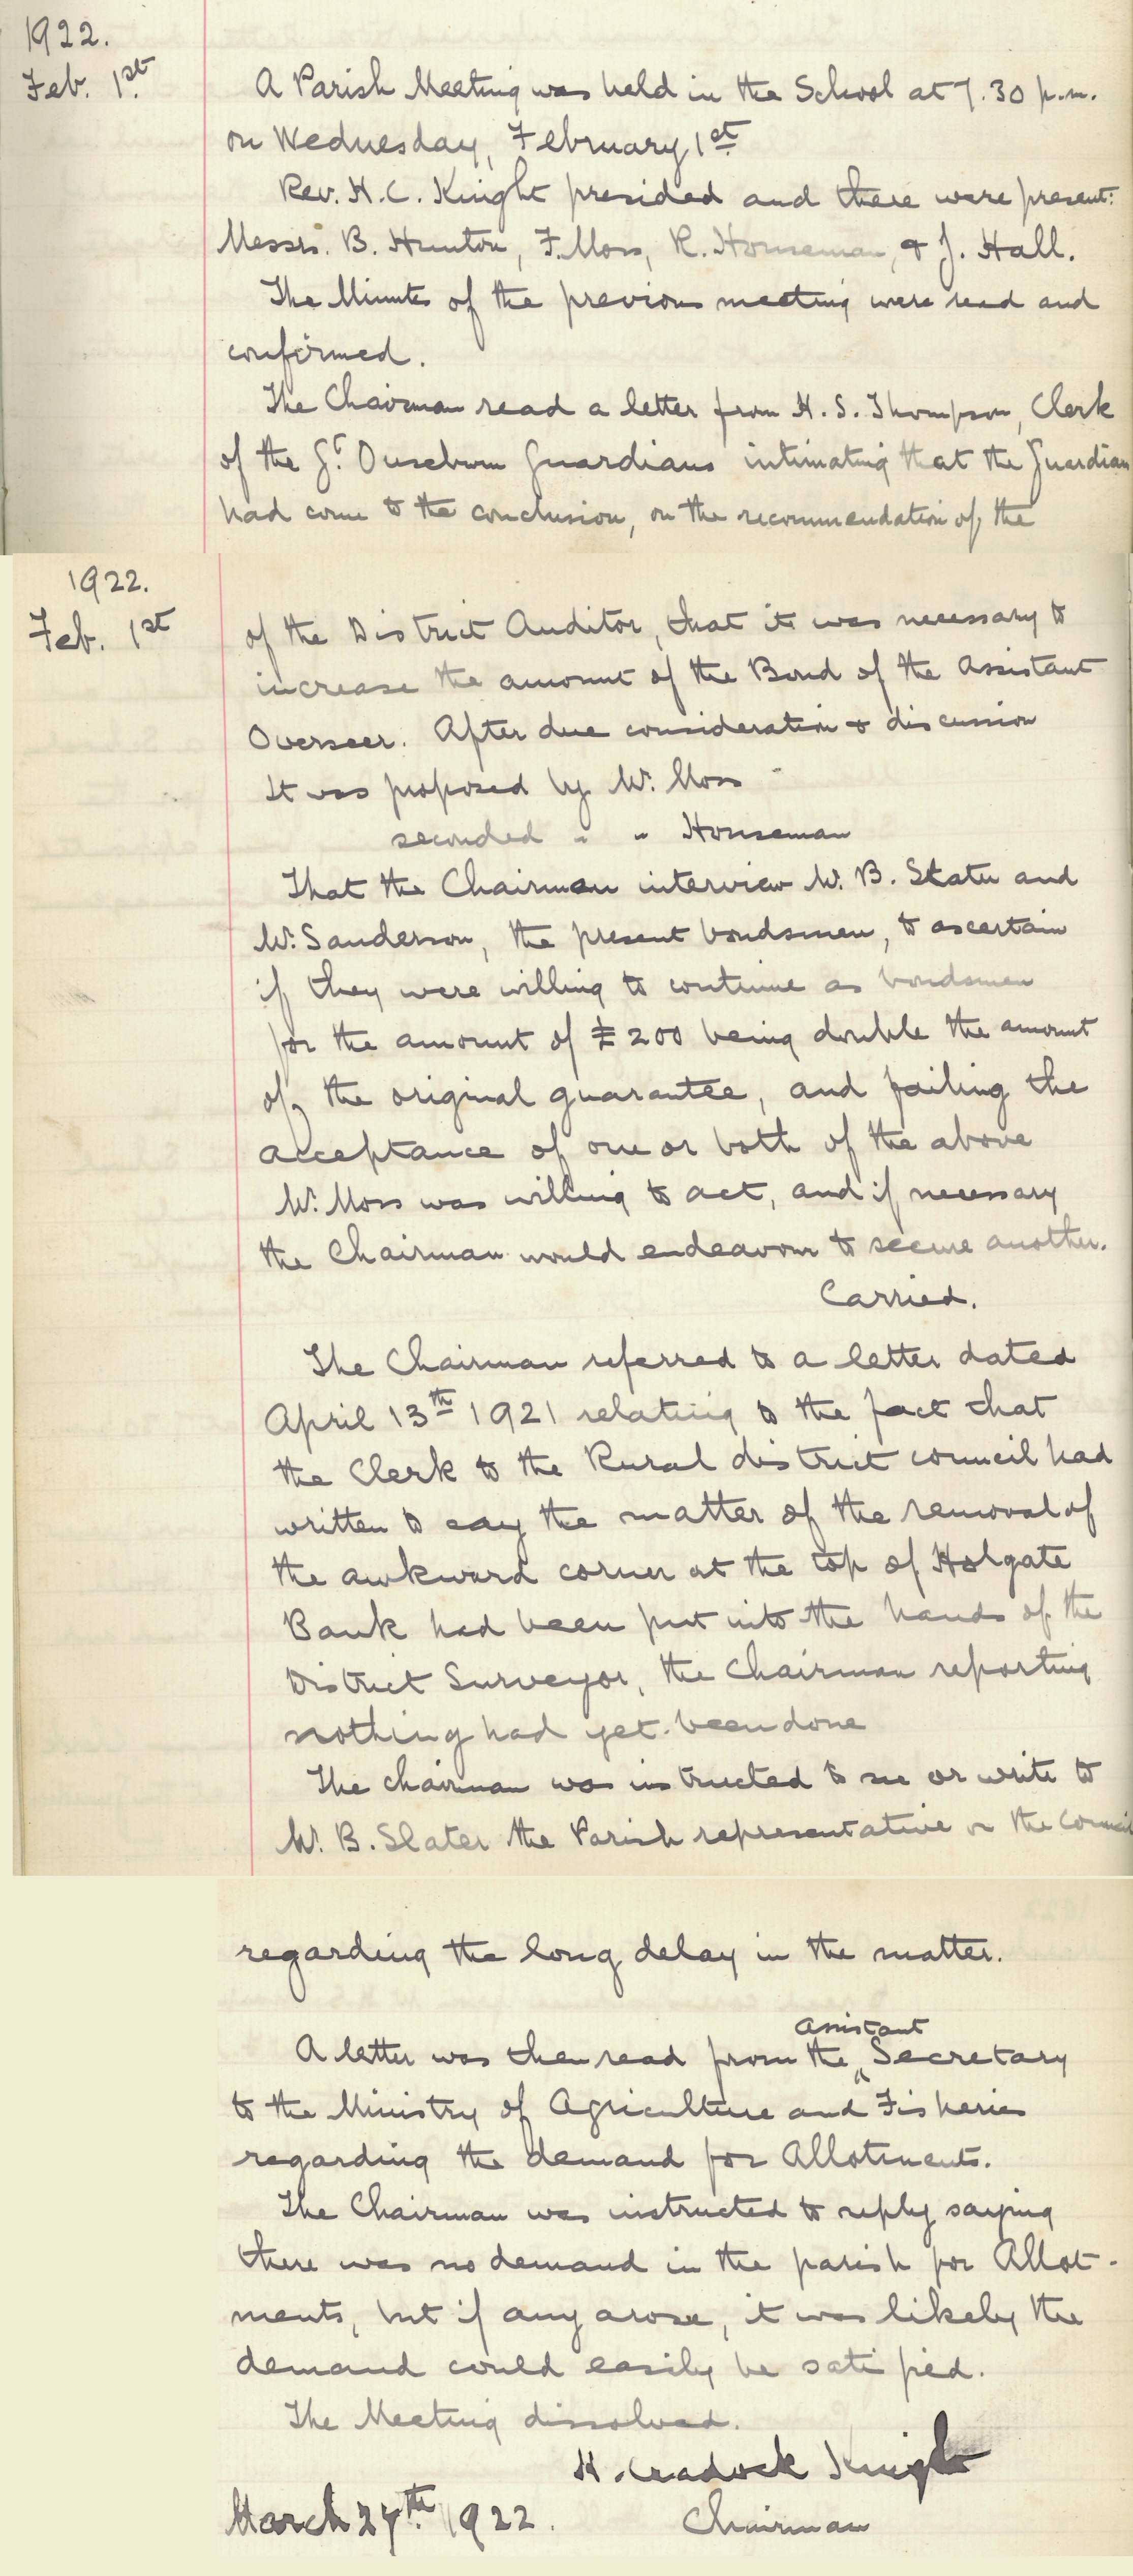 1922.
Feb. 1st
A Parish Meeting was held in the School at 7.30 p.m.
on Wednesday, February 1st
Rev. H. C. Knight presided and there were present:
Messrs. B. Hunton, F. Moss, R. Houseman, & J. Hall.
The Minutes of the previous meeting were read and
confirmed.
The Chairman read a letter from H. S. Thompson, Clerk
of the Gt. Ouseburn Guardians intimating that the Guardian
had come to the conclusion, on the recommendation of the
1922.
Feb. 1st
of the District Auditor, that it was necessary to
increase the amount of the Bond of the Assistant
Overseer. After due consideration & discussion
It was proposed by Mr. Moss
seconded " " Houseman
That the Chairman interview Mr. B. Slater and
Mr. Sanderson, the present bondsmen, to ascertain
if they were willing to continue as bondsmen
for the amount of £200 being double the amount
of the original guarantee, and failing the
acceptance of one or both of the above
Mr. Moss was willing to act, and if necessary
the Chairman would endeavour to secure another.
Carried.
The Chairman referred to a letter dated
April 13th 1921 relating to the fact that
the Clerk to the Rural district council had
written to say the matter of the removal of
the awkward corner at the top of Holgate
Bank had been put into the hands of the
District Surveyor, the Chairman reporting
nothing had yet been done
The chairman was instructed to see or write to
Mr. B. Slater the Parish representative on the Council
regarding the long delay in the matter.
assistant
A letter was then read from the ^ Secretary
to the Ministry of Agriculture and Fisheries
regarding the demand for Allotments.
The Chairman was instructed to reply saying
there was no demand in the parish for Allot-
ments, but if any arose, it was likely the
demand could easily be satisfied.
The Meeting dissolved.
H. Cradock Knight
March 27th 1922.
Chairman